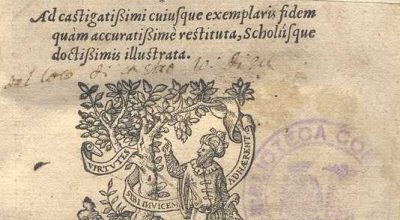 Ad castigatißimi cuiusque exemplaris fidem
quàm accuratißimè restituta, Scholiísque
doctißimis illustrata.
VIRTVTES
SIBI INVICEM
ADHAERENT
BIBLIOTECA COM